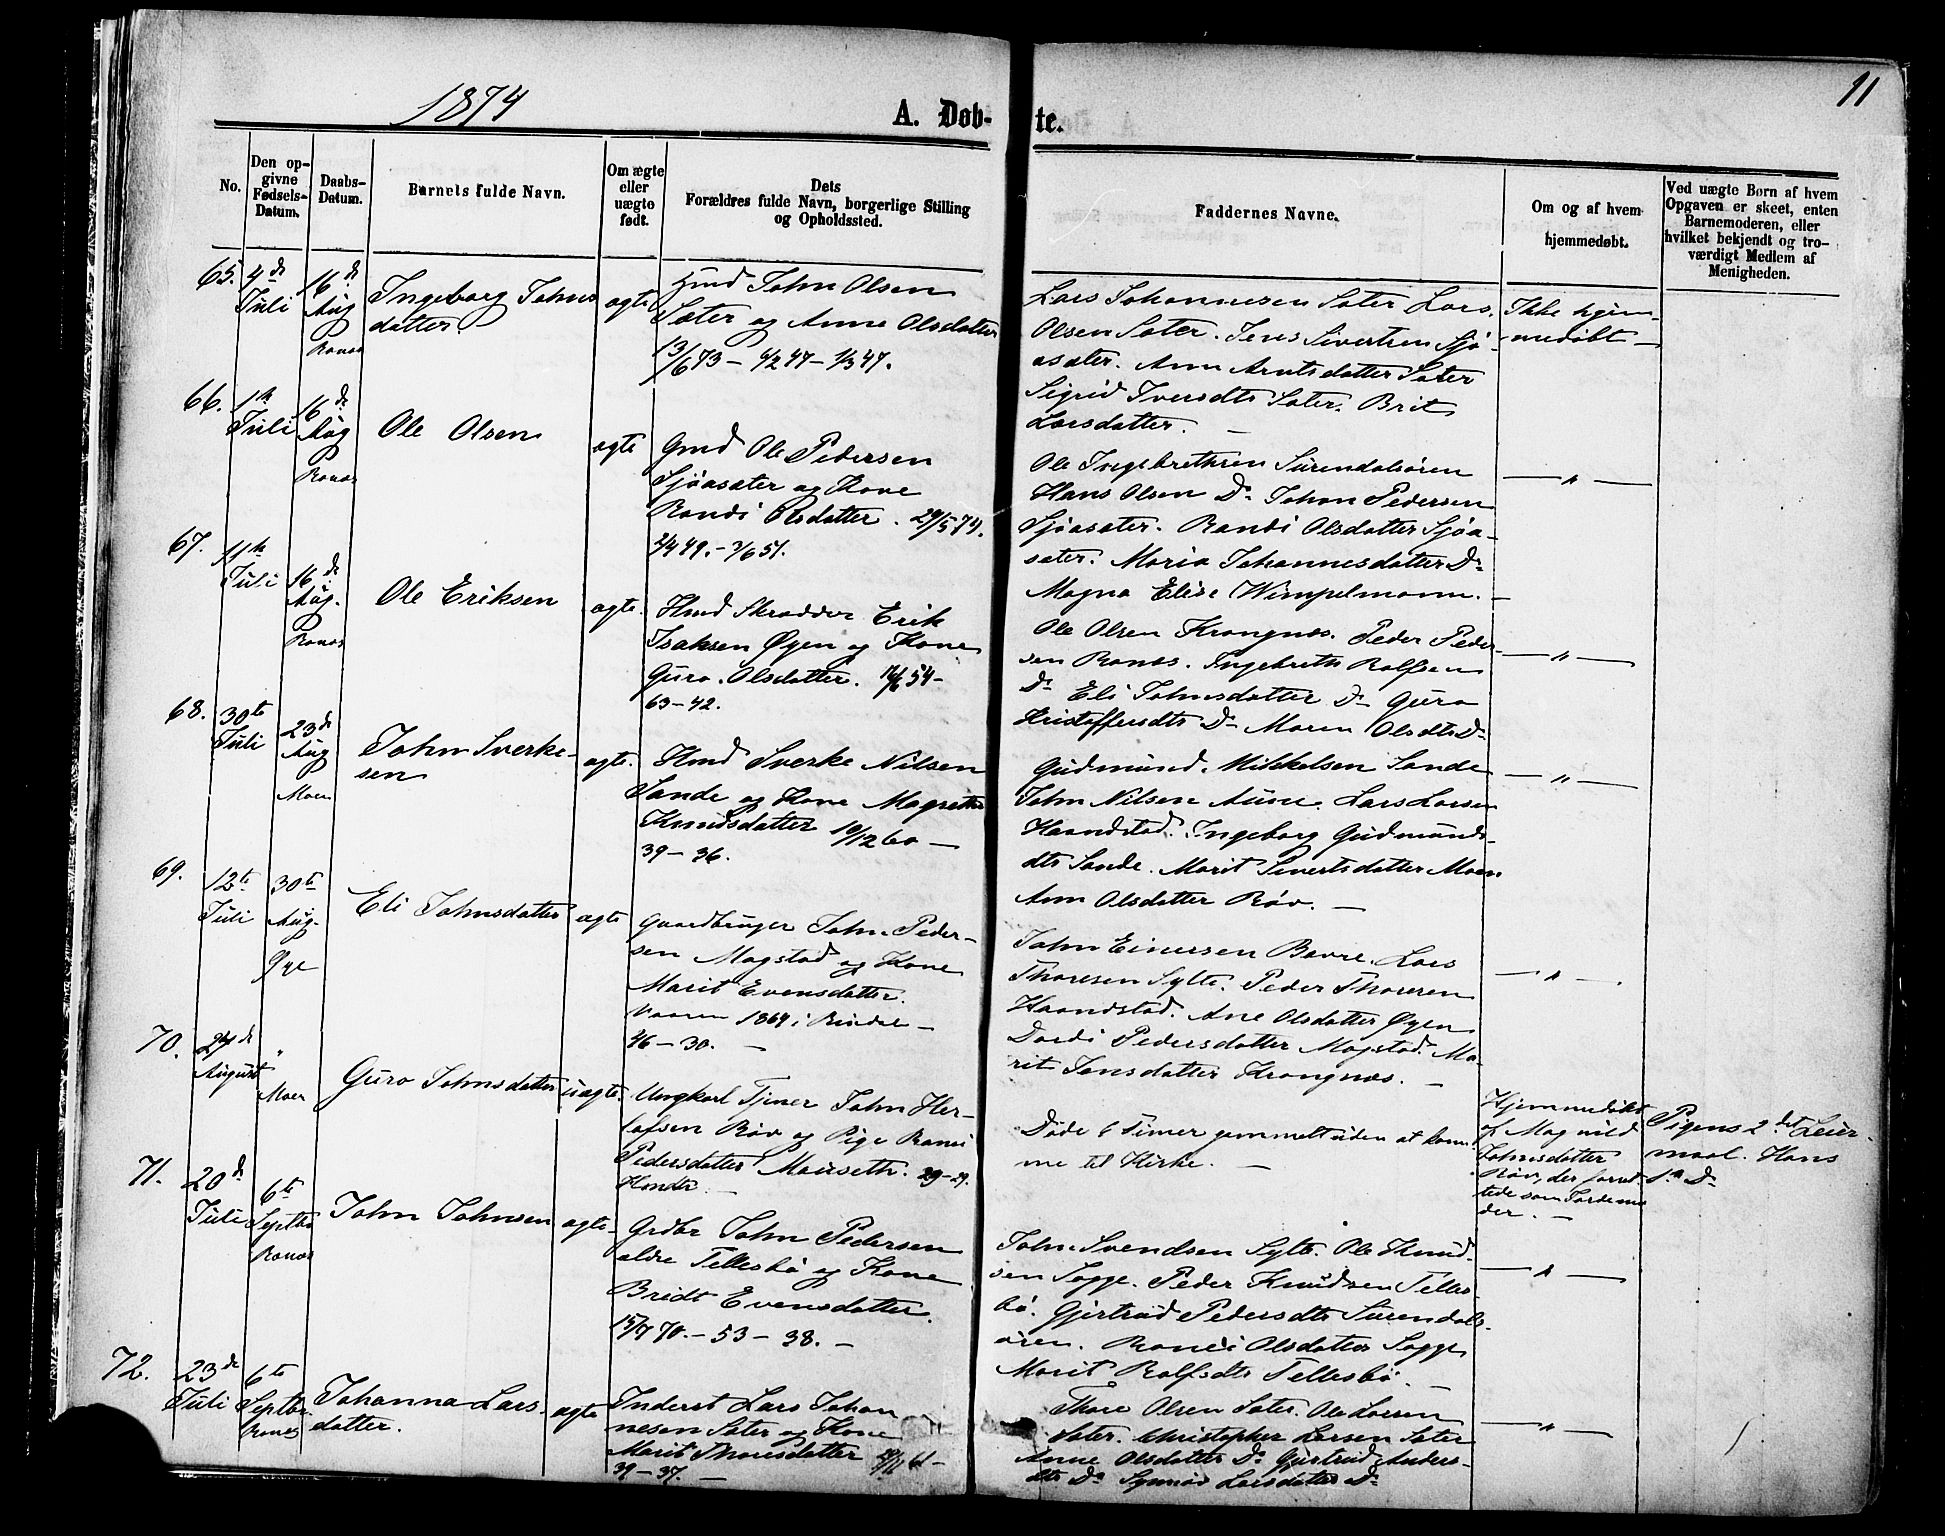 1874
A. Døb-
te.
11
No.
Den op-
givne
Fødsels-
Datum.
Daabs-
Datum.
Barnets fulde Navn.
Om ægte
eller
uægte
født.
Dets
Forældres fulde Navn, borgerlige Stilling
og Opholdssted.
Faddernes Navne.
Om og af hvem
hjemmedøbt.
Ved uægte Børn af hvem
Opgaven er skeet, enten
Barnemoderen, eller
hvilket bekjendt og tro-
værdigt Medlem af
Menigheden.
65.
4de
Juli
16de
Aug
Ranæs
Ingeborg Johns
datter
ægte
Hmd John Olsen
Sæter og Anne Olsdatter
13/6 73 – 4/2 47 – 1/3 47.
Lars Johannesen Sæter Lars
Olsen Sæter. Jens Sivertsen Sjø-
asæter. Ann Arntsdatter Sæter
Sigrid Iversdtr Sæter. Brit
Larsdatter. –
Ikke hjem-
medøbt –
66.
1ste
Juli
16de
Aug
Ranæs
Ole Olsen
ægte
Gmd Ole Pedersen
Sjøasæter og Kone
Randi Olsdatter. 29/5 74.
2/4 49. – 3/6 51.
Ole Ingebrethsen Surendalsøren
Hans Olsen Do Johan Pedersen
Sjøasæter. Randi Olsdatter Sjøa-
sæter. Maria Johannesdatter Do
Magna Elise Wimpelmann. –
– " –
67.
11te
Juli
16de
Aug.
Ranæs
Ole Eriksen
ægte.
Hmd Skrædder Erik
Isaksen Øyen og Kone
Guro Olsdatter. 12/6 54 –
63 – 42.
Ole Olsen Krangnæs. Peder Peder-
sen Ranæs. Ingebreth Rolfsen
Do Eli Johnsdatter Do Guro
Kristoffersdtr Do Maren Olsdtr Do
– " –
68.
30te
Juli
23de
Aug
Moen
John Sverke-
sen
ægte.
Hmd Sverke Nilsen
Sande og Kone Magrethe
Knudsdatter 10/12 60 –
39 – 36.
Gudmund Mikkelsen Sande
John Nilsen Aune. Lars Larsen
Haandstad. Ingeborg Gudmunds-
dtr Sande. Marit Sivertsdatter Moen
Ann Olsdatter Røv. –
– " –
69.
12te
Juli
30te
Aug.
Øye
Eli Johnsdatter
ægte
Gaardbruger John Peder-
sen Mogstad og Kone
Marit Evensdatter.
Vaaren 1864 i Rindal –
46 – 30. –
John Einersen Bævre. Lars
Thoresen Sylte. Peder Thoresen
Haandstad. Ane Olsdatter Øyen
Dordi Pedersdatter Mogstad. Ma-
rit Jonsdatter Krangnæs. –
– " –
70.
24de
August
"
Moen
Guro Johnsdatter
uægte.
Ungkarl Tjener John Her-
lofsen Røv og Pige Randi
Pedersdatter Mauseth. 29 – 29.
Døde 6 Timer gammelt uden at kom-
me til Kirke. –
Hjemmedøbt
af Magnild
Johnsdatter
Røv, der forret-
tede som Jordemo-
der. –
Pigens 2det Leier-
maal. Hans
1ste Do
71.
20de
Juli
6te
Septbr
Ranæs
John Johnsen
ægte
Grdbr John Pedersen
ældre Tellesbø og Kone
Bridt Evensdatter.
15/7 70. – 53 – 38. –
John Svendsen Sylte. Ole Knud-
sen Sogge. Peder Knudsen Telles-
bø. Gjertrud Pedersdtr Surendals-
øren. Randi Olsdatter Sogge
Marit Rolfsdtr Tellesbø. –
– " –
72.
23de
Juli
6te
Septbr.
Ranæs
Johanna Lars-
datter.
ægte
Inderst Lars Johan
nesen Sæter og Kone
Marit Thoresdatter
39 – 37. –
Thore Olsen Sæter. Ole Larsen
Sæter. Christopher Larsen Sæter
Anne Olsdatter Do Gjertrud Anders-
dtr Do Synnøv Larsdatter Do
– " –